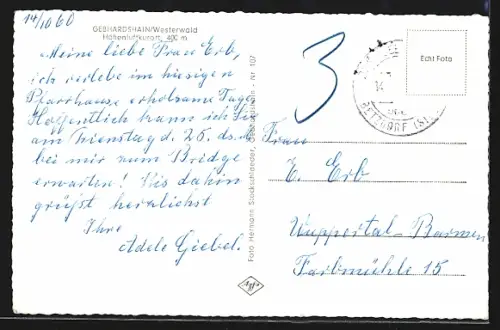 14/10 60
GEBHARDSHAIN/Westerwald
Höhenluftkurort, 400 m
Meine liebe Frau Erb,
ich verlebe im hiesigen
Pfarrhause erholsame Tage.
Hoffentlich kann ich Sie
am Dienstag d. 25. ds. M.
bei mir zum Bridge
erwarten! Bis dahin
grüßt herzlichst
Ihre
Adele Giebel.
Foto Hermann Stockschlaeder, Nr 107
3
BETZDORF (SIEG)
Echt Foto
Frau
E. Erb
Wuppertal-Barmen
Farbmühle 15
Agfa